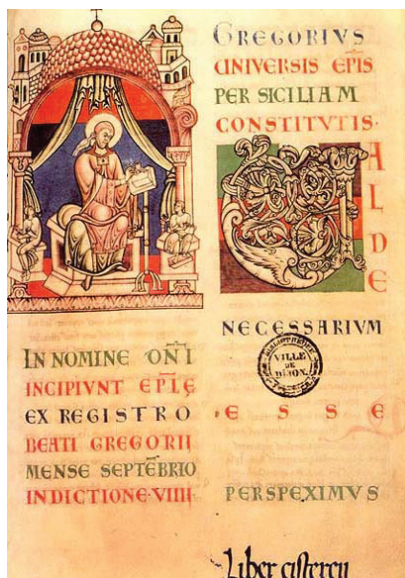 IN NOMINE DN̄I
INCIPIVNT EPL̄E
EX REGISTRO
BEATI GREGORII
MENSE SEPTĒBRIO
INDICTIONE·VIIII·
GREGORIVS
UNIVERSIS EP̄IS
PER SICILIAM
CONSTITVTIS·
VALDE
NECESSARIVM
BIBLIOTHEQUE
VILLE
DE
DIJON.
ESSE
PERSPEXIMVS
Liber cistercii